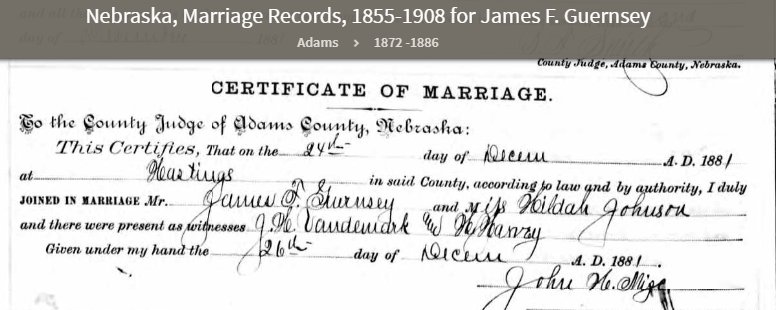 Nebraska, Marriage Records, 1855-1908 for James F. Guernsey
Adams > 1872 -1886
County Judge, Adams County, Nebraska.
CERTIFICATE OF MARRIAGE.
To the County Judge of Adams County, Nebraska:
This Certifies, That on the 24th day of Decem A. D. 1881
at Hastings in said County, according to law and by authority, I duly
JOINED IN MARRIAGE Mr. James F. Guernsey and Miss Hildah Johnson
and there were present as witnesses J. H. Vandemark W H
Given under my hand the 26th day of Decem A. D. 1881.
John H.